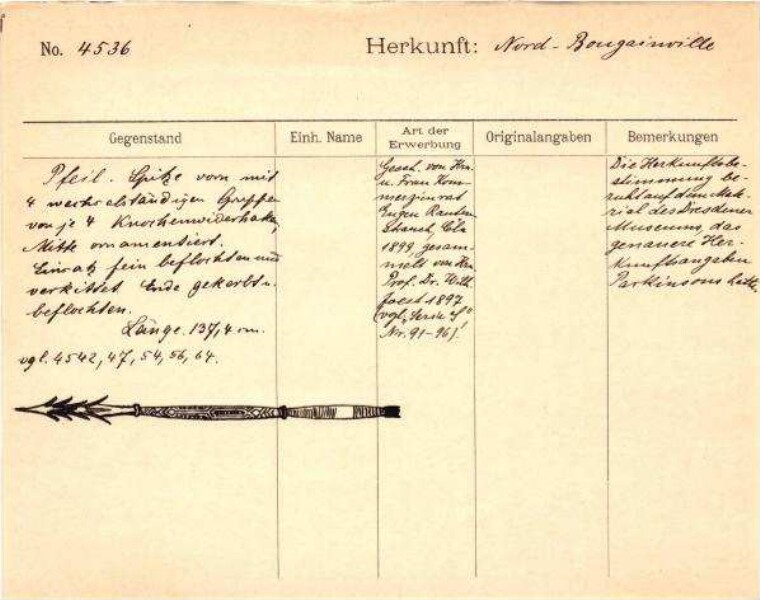 No. 4536
Herkunft: Nord-Bougainville
Gegenstand
Einh. Name
Art der
Erwerbung
Originalangaben
Bemerkungen
Pfeil. Spitze vorn mit
4 wechselständigen Gruppen
von je 4 Knochenwiderhaken,
Mitte ornamentiert.
Einsatz fein beflochten und
verkittet Ende gekerbt u.
beflochten.
Länge. 137,4 cm.
vgl. 4542, 47, 54, 56, 64.
Gesch. von Hrn.
u. Frau Kom-
merzienrat
Eugen Rauten
strauch, Cöln
1899, gesam-
melt von Hrn.
Prof. Dr. With
1897
(vgl. Serie
Nr. 91-96)!
Die Herkunftsbe-
stimmung be-
ruht auf dem Mate-
rial des Dresdener
Museums, das
genauere Her-
kunftsangaben
Parkinsons hatte.